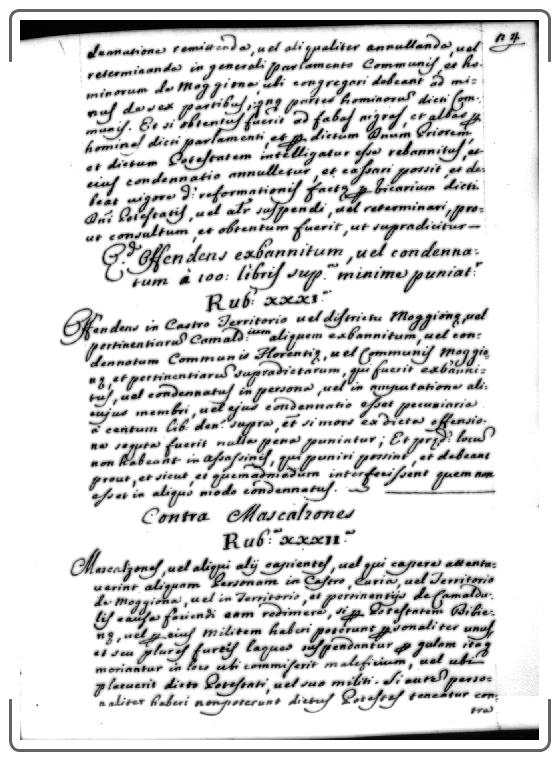 demnatione remittenda, vel aliqualiter annullanda, vel
reterminanda in generali parlamento Communis et ho-
minorum de Moggiona, ubi congregari debeant ad mi-
nus de sex partibus, qnq partes hominorum dicti Com-
munis. Et si obtentus fuerit ad fabas nigras, et albas p
homines dicti parlamenti, et p dictum Dnum Priorem
et dictum Potestatem intelligatur esse rebannitus, et
eius condennatio annulletur, et cassari possit, et de-
beat vigore d: reformationis facte p vicarium dicti
Dni Potestatis, vel alr suspendi, vel reterminari, pro-
ut consultum, et obtentum fuerit, ut supradicitur
Qd Offendens exbannitum, vel condenna-
tum à 100: libris sup. minime puniat.
Rub. XXXI.
Offendens in Castro Territorio vel districtu Moggione, vel
pertinentiarum Camald. aliquem exbannitum, vel con-
dennatum Communis Florentie, vel Communis Moggio-
ne, et pertinentiarum supradictarum, qui fuerit exbanni-
tus, vel condennatus in persona, vel in amputatione ali-
cujus membri, vel ejus condennatio esset pecuniaria
à centum lib. den. supra, et si mors ex dicta offensio-
ne sequta fuerit nulla pena puniantur; Et locum
non habeant in Assassinis, qui puniri possint, et debeant
prout, et sicut, et quemadmodum interfecissent quem non
esset in aliquo modo condennatus.
Contra Mascalzones
Rub. XXXII.
Mascalzones, vel aliqui alij capientes, vel qui capere attenta-
verint aliquam Personam in Castro, Curia, vel Territorio
de Moggiona, vel in Territorio, et pertinentijs de Camaldu-
lis causa faciendi eam redimere, si p Potestatem Bibie-
ne, vel p eius Militem haberi poterunt personaliter unus,
et seu plures furtis laqueo suspendantur p gulam itaq
moriantur in loco ubi commiserit maleficium, vel ubi
placuerit dicto Potestati, vel suo militi. Si autem perso-
naliter haberi non poterunt dictus Potestas teneatur con-
tra